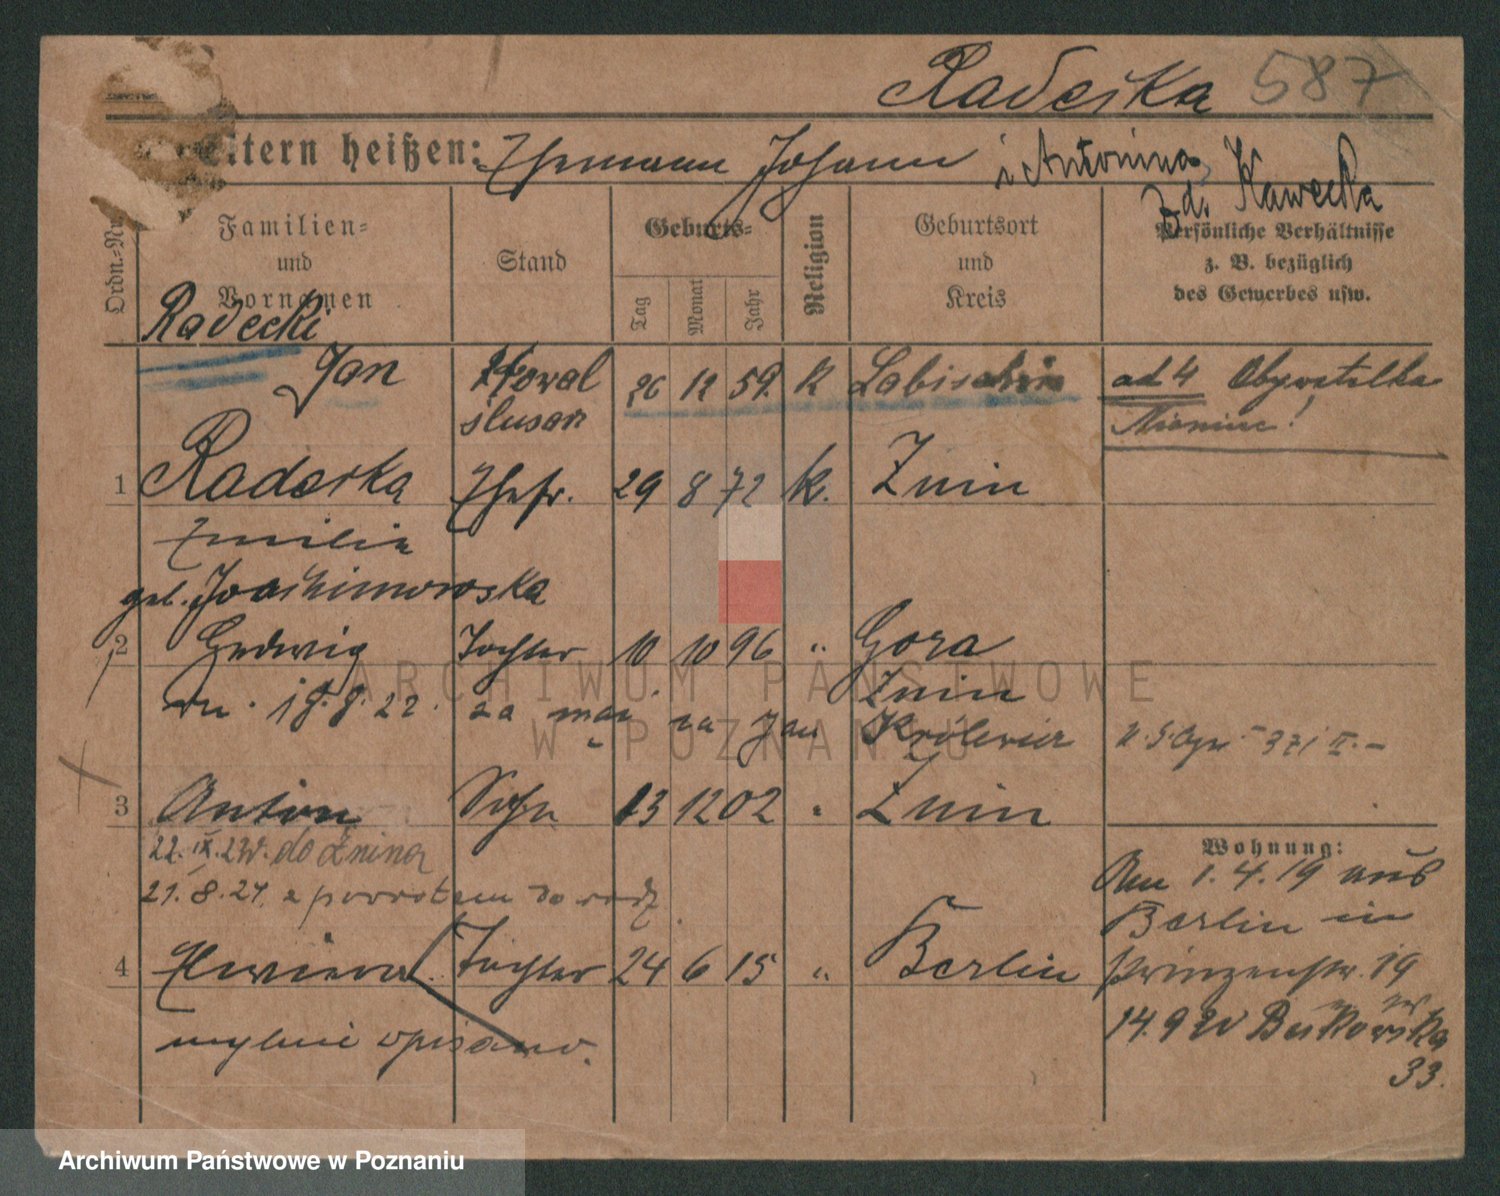 Radecka 587
Eltern heißen: Ehemann Johann i Antonina,
zd. Kawecka
Ordn.-Nr.
Familien=
und
Vornamen
Stand
Geburts=
Tag
Monat
Jahr
Religion
Geburtsort
und
Kreis
Persönliche Verhältnisse
z. B. bezüglich
des Gewerbes usw.
Radecki
Jan Kowal 26 12 59. k Labischin ad 4 Obywatelka
ślusarz Niemiec!
1 Radecka Ehefr. 29 8 72 k. Znin
Emilie
geb. Joachimowska
2 Hedwig Tochter 10 10 96 " Gora
Znin
18.8.22. za mąż za Jan Królewicz
3 Anton Sohn 13 12 02 " Znin
22.IX.23r. do Żnina
21.8.24. z powrotem do rodz.
Wohnung:
Am 1.4.19 aus
Berlin in
Prinzenstr. 19
14.9 20 Bukowska
33.
4 Tochter 24 6 15 " Berlin
mylnie opisano.
ARCHIWUM PAŃSTWOWE
W POZNANIU
Archiwum Państwowe w Poznaniu